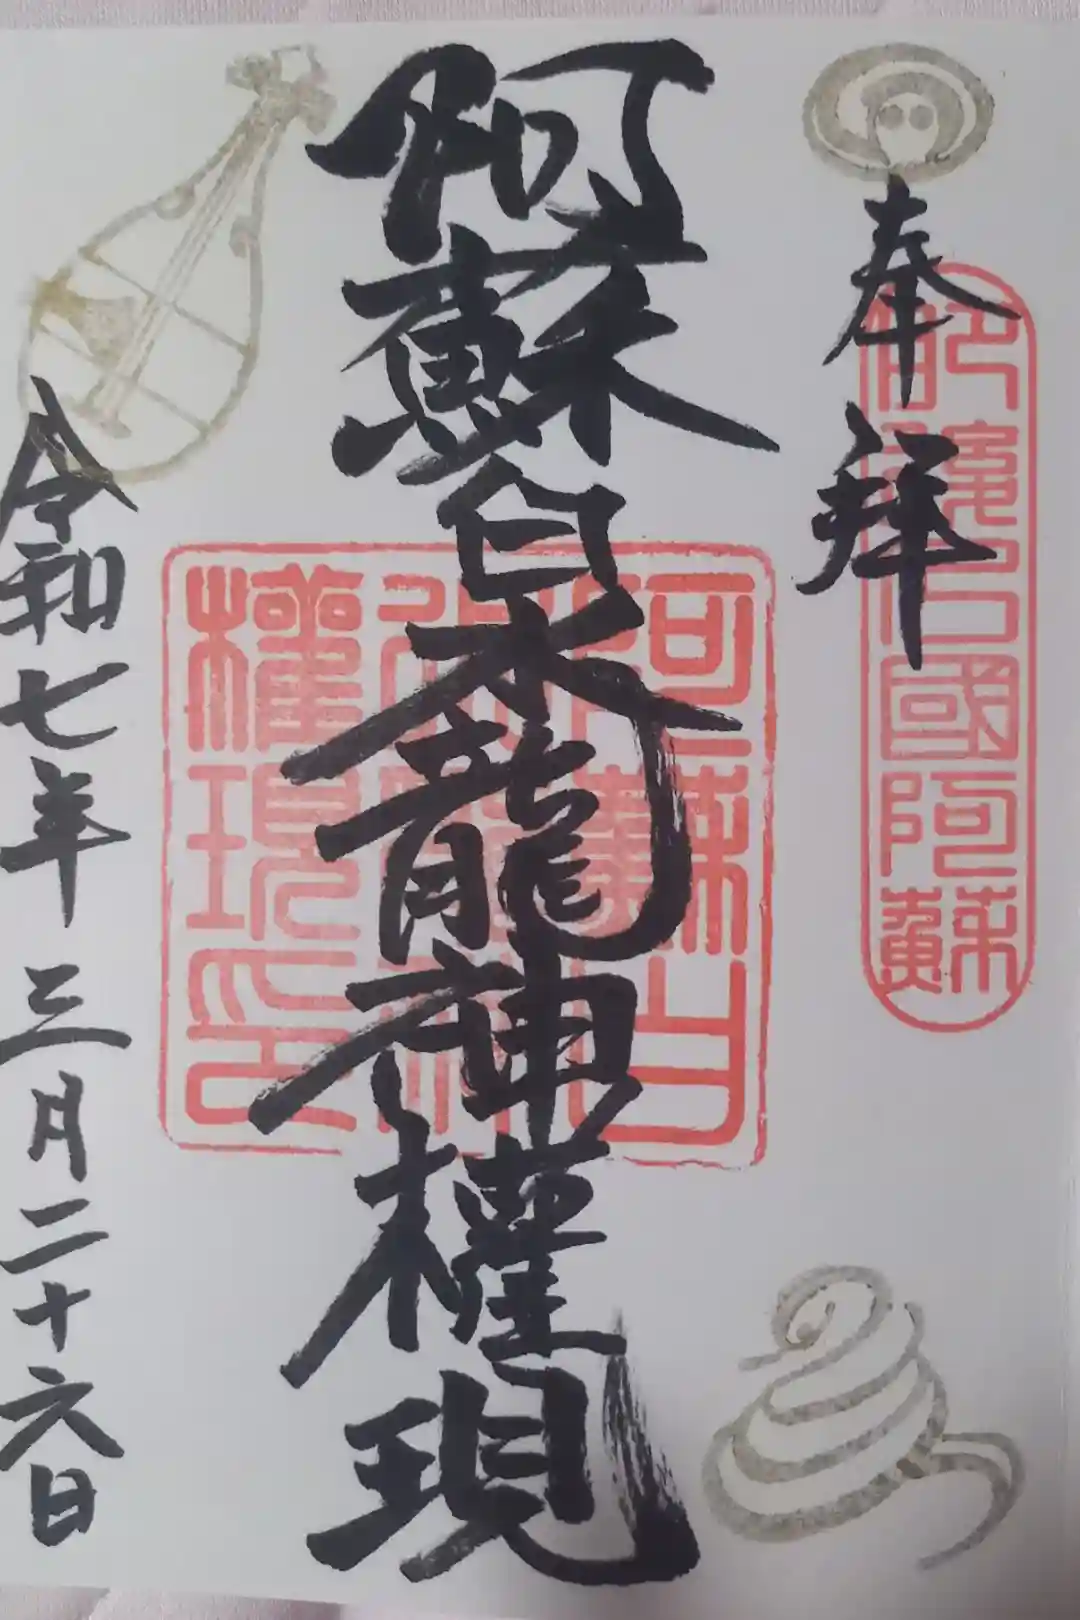 奉拝
阿蘇白水龍神權現
令和七年三月二十六日
國阿蘇
阿蘇山
權現印